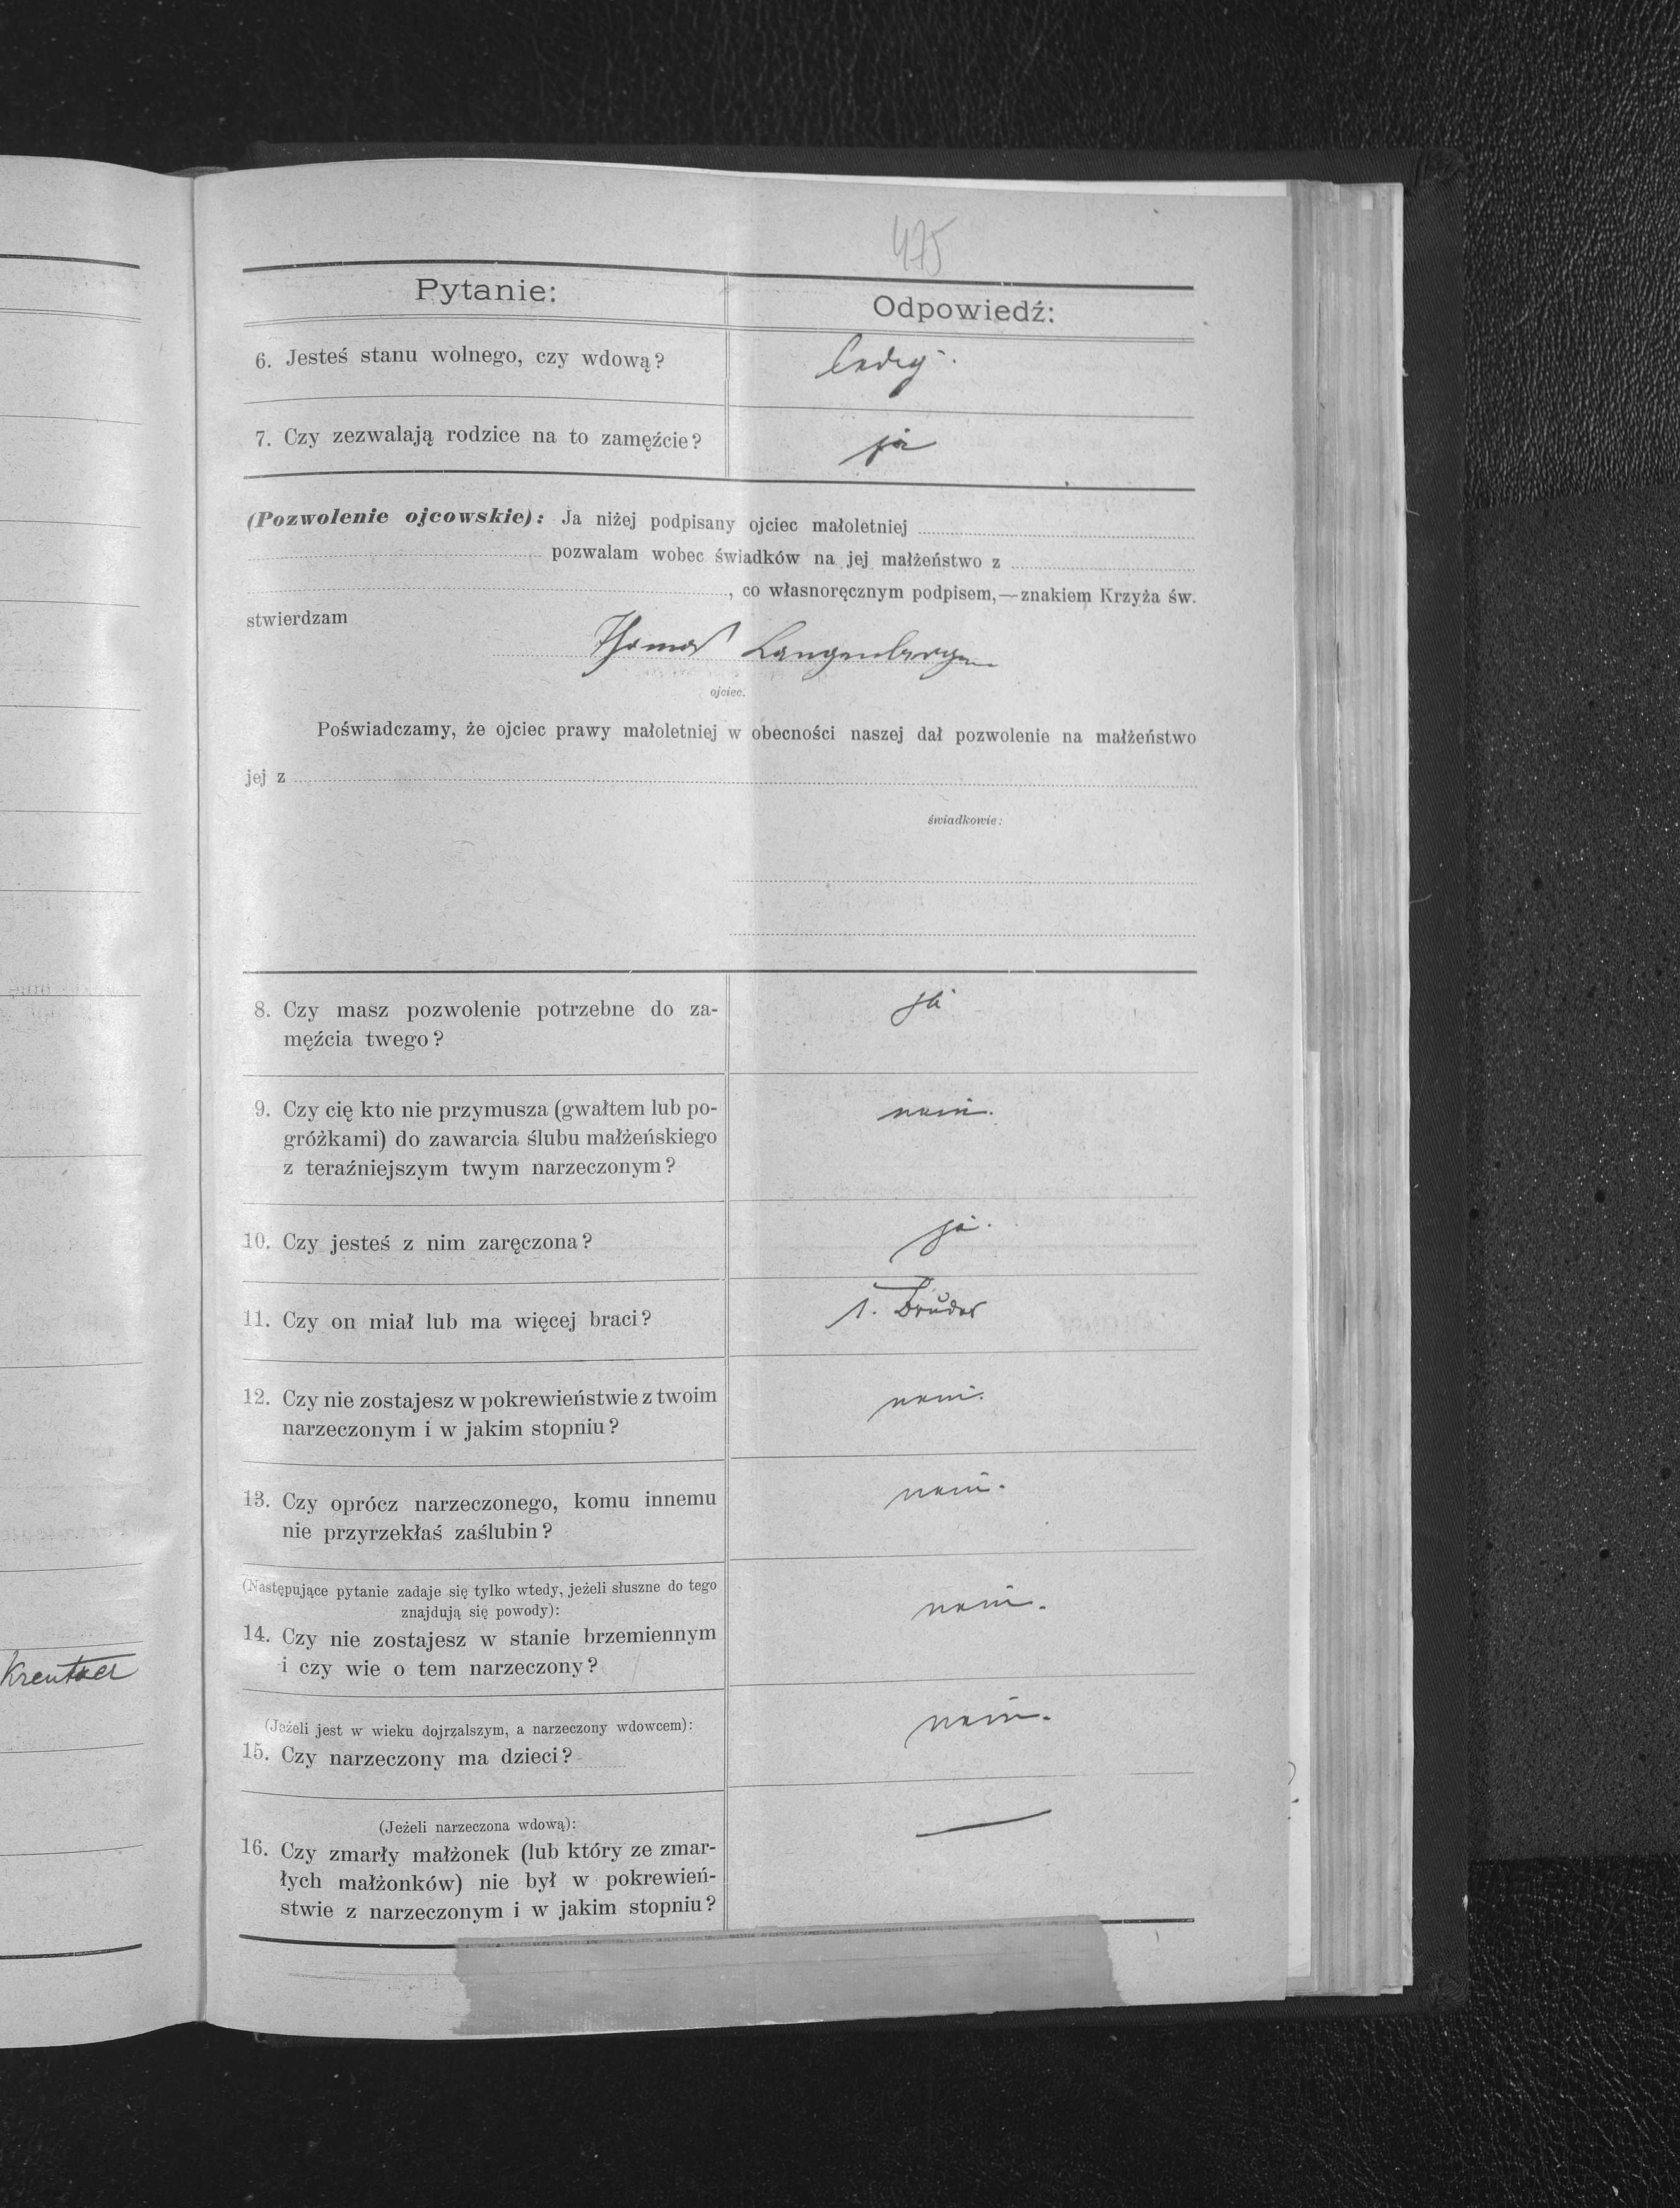 475
Pytanie:
Odpowiedź:
6. Jesteś stanu wolnego, czy wdową?
ledig.
7. Czy zezwalają rodzice na to zamęźcie?
ja
(Pozwolenie ojcowskie): Ja niżej podpisany ojciec małoletniej
pozwalam wobec świadków na jej małżeństwo z
, co własnoręcznym podpisem,—znakiem Krzyża św.
stwierdzam
Thomas
ojciec.
Poświadczamy, że ojciec prawy małoletniej w obecności naszej dał pozwolenie na małżeństwo
jej z
świadkowie:
8. Czy masz pozwolenie potrzebne do za-
męźcia twego?
ja
9. Czy cię kto nie przymusza (gwałtem lub po-
gróżkami) do zawarcia ślubu małżeńskiego
z teraźniejszym twym narzeczonym?
nein.
10. Czy jesteś z nim zaręczona?
ja.
11. Czy on miał lub ma więcej braci?
1. Bruder
12. Czy nie zostajesz w pokrewieństwie z twoim
narzeczonym i w jakim stopniu?
nein.
13. Czy oprócz narzeczonego, komu innemu
nie przyrzekłaś zaślubin?
nein.
(Następujące pytanie zadaje się tylko wtedy, jeżeli słuszne do tego
znajdują się powody):
14. Czy nie zostajesz w stanie brzemiennym
i czy wie o tem narzeczony?
nein.
(Jeżeli jest w wieku dojrzalszym, a narzeczony wdowcem):
15. Czy narzeczony ma dzieci?
nein.
(Jeżeli narzeczona wdową):
16. Czy zmarły małżonek (lub który ze zmar-
łych małżonków) nie był w pokrewień-
stwie z narzeczonym i w jakim stopniu?